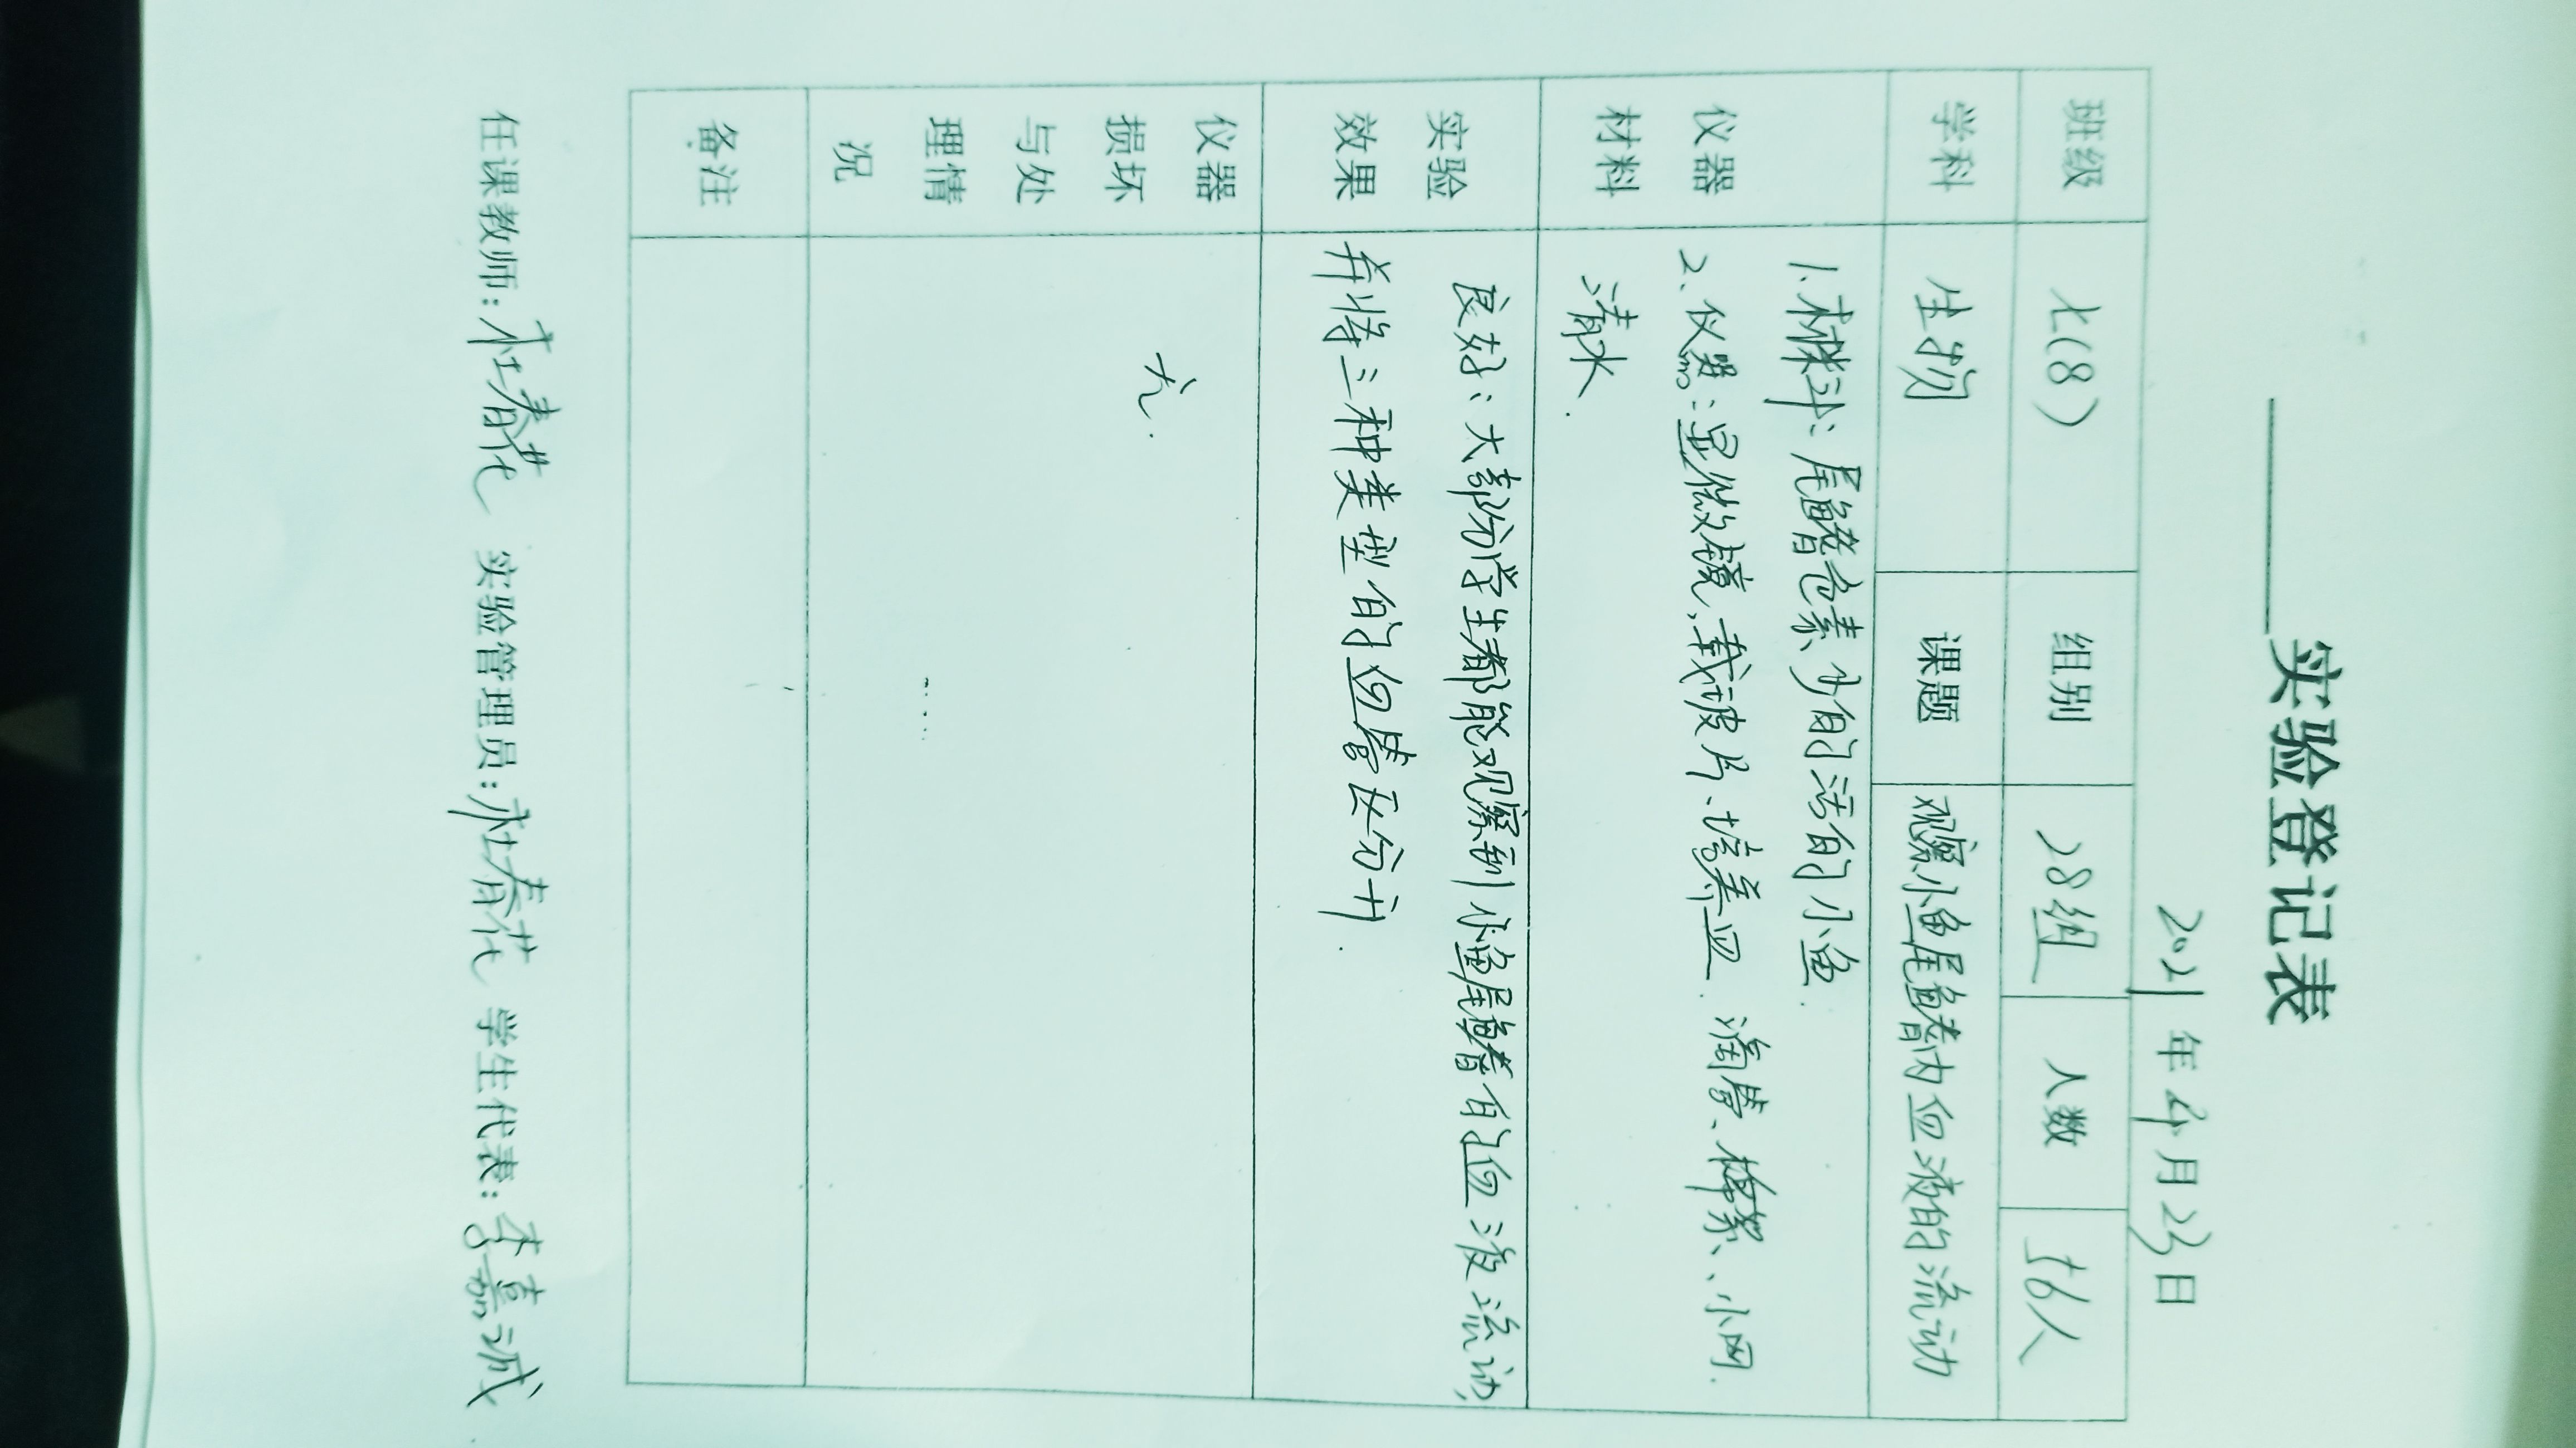 实验登记表
2021年4月23日
班级 七(8) 组别 28组 人数 56人
学科 生物 课题 观察小鱼尾鳍内血液的流动
仪器材料
1、材料：尾鳍色素少的活的小鱼.
2、仪器：显微镜、载玻片、培养皿、滴管、棉絮、小网.
清水.
实验效果
良好：大部份学生都能观察到小鱼尾鳍的血液流动,
并将三种类型的血管区分开.
仪器损坏与处理情况
无.
备注
任课教师：杜春花 实验管理员：杜春花 学生代表：李嘉诚